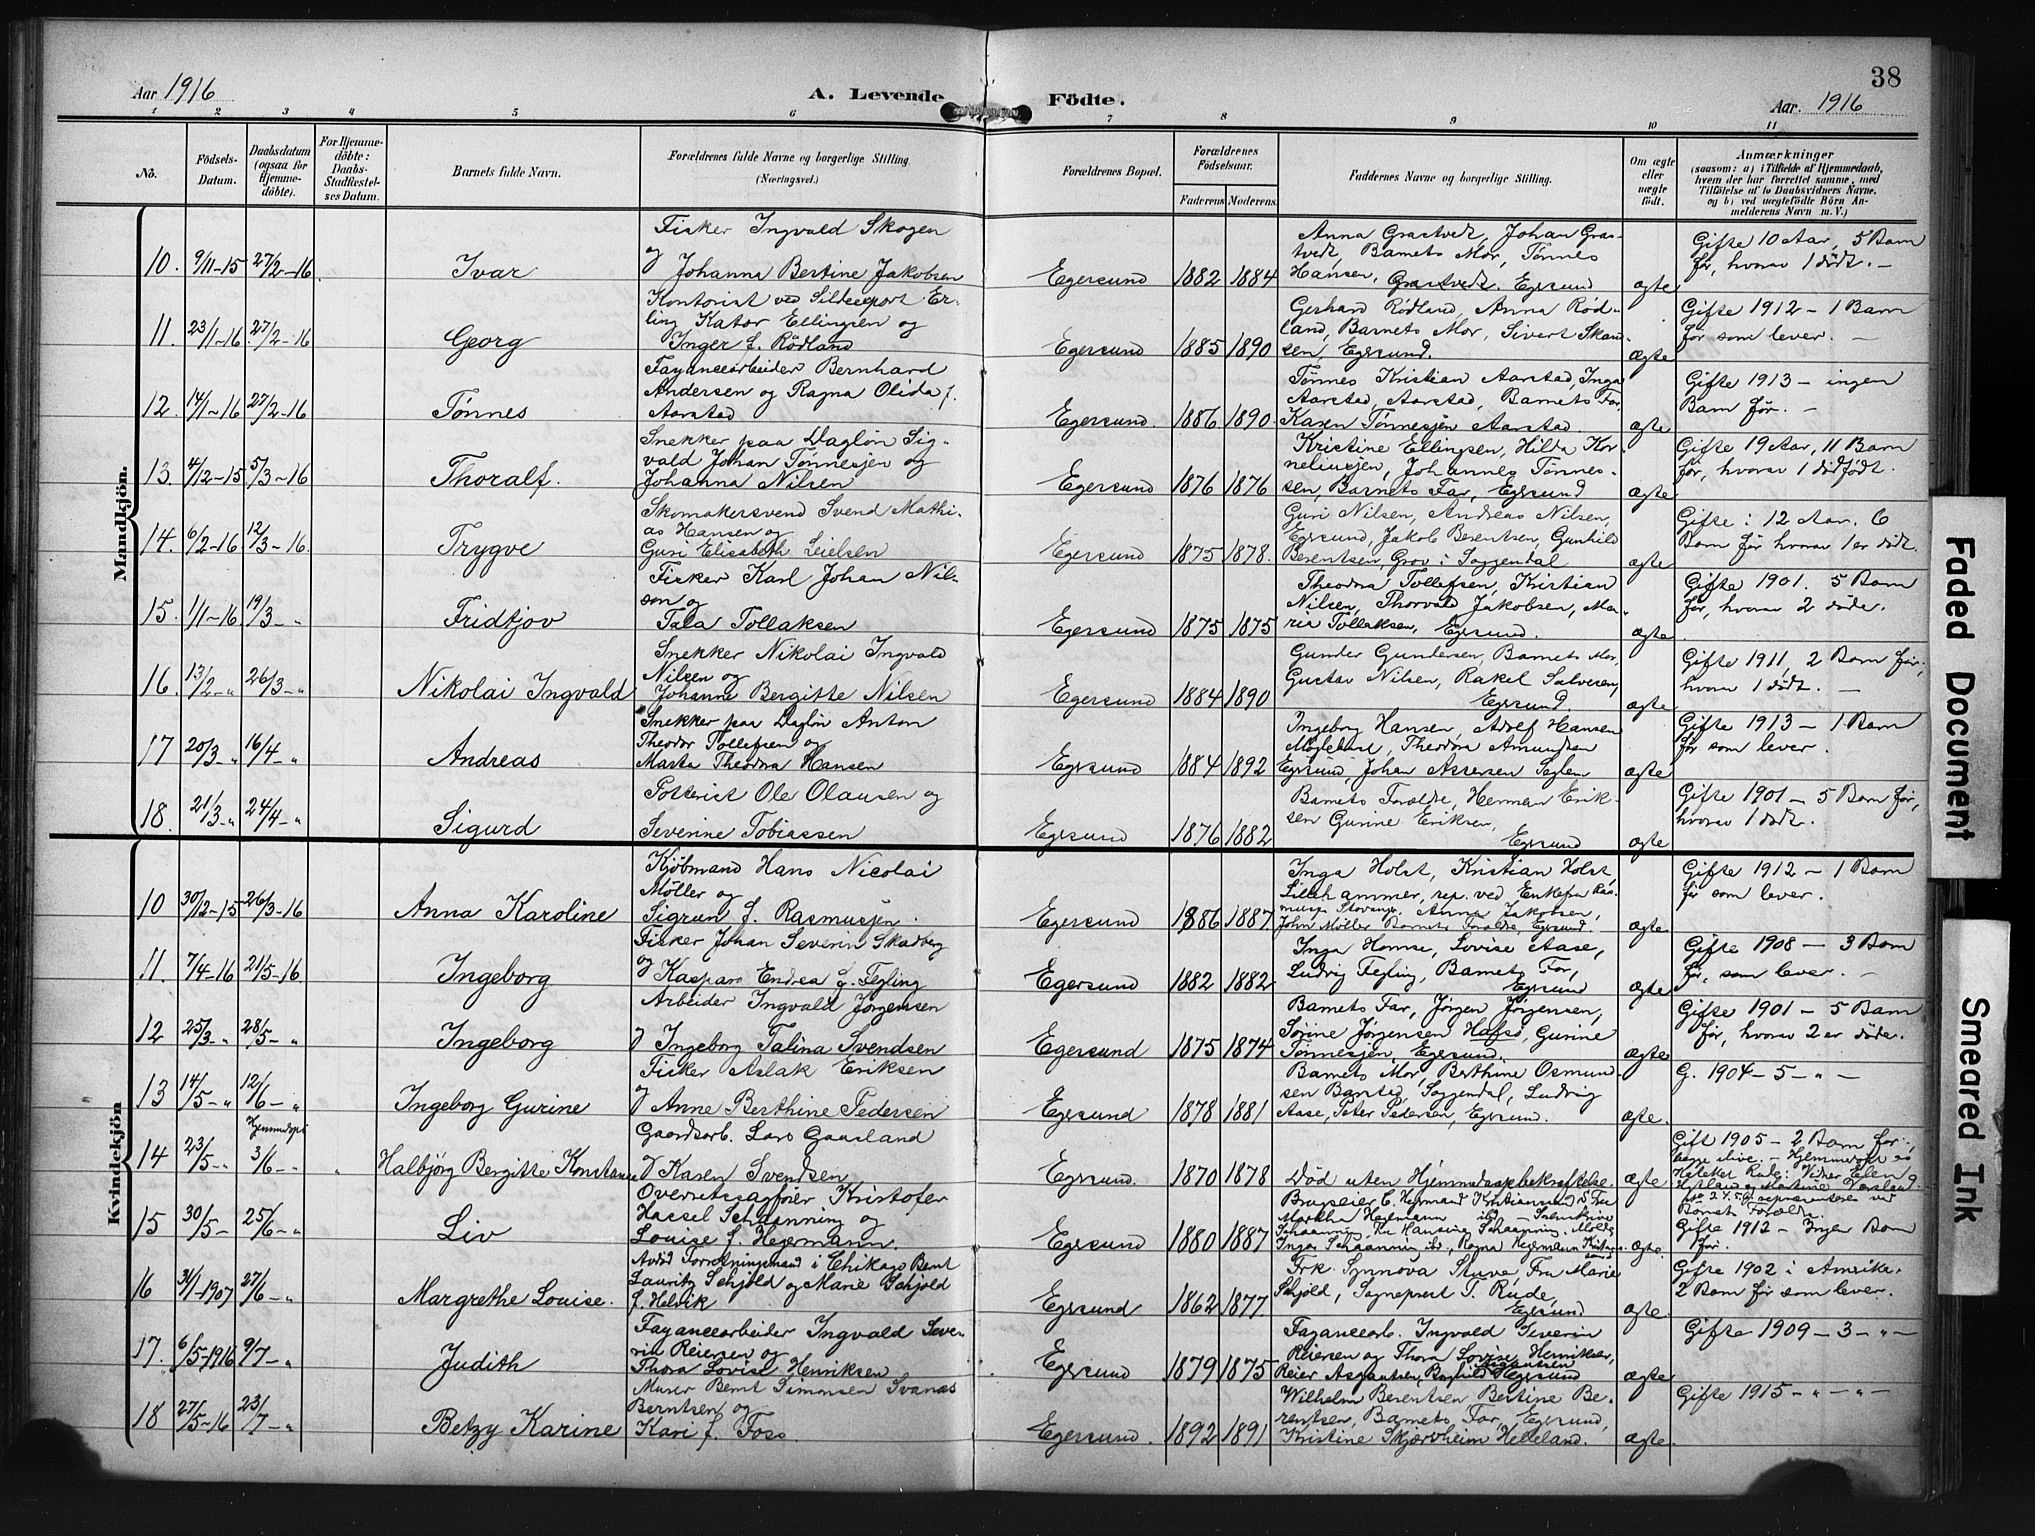 38
Aar 1916
A. Levende
Födte.
Aar. 1916
1 2 3 4 5 6 7 8 9 10 11
No.
Födsels-
Datum.
Daabsdatum
(ogsaa for
Hjemme-
döbte).
For Hjemme-
döbte:
Daabs-
Stadfæstel-
ses Datum.
Barnets fulde Navn.
Forældrenes fulde Navne og borgerlige Stilling.
(Næringsvei.)
Forældrenes Bopæl.
Forældrenes
Födselsaar.
Faderens Moderens
Faddernes Navne og borgerlige Stilling.
Om ægte
eller
uægte
födt.
Anmærkninger
(saasom: a) i Tilfælde af Hjemmedaab,
hvem der har forrettet samme, med
Tilföielse af to Daabsvidners Navne,
og b) ved uægtefödte Börn An-
melderens Navn m. V.)
Mandkjön.
10. 9/11-15 27/2-16
Ivar
Fisker Ingvald Skogen
og Johanna Bertine Jakobsen
Egersund 1882 1884
Anna Grastvedt, Johan Gras-
tvedt, Barnets Mor, Tønnes
Hansen, Grastvedt. Egersund
ægte
Gifte 10 Aar, 5 Barn
før, hvorav 1 dødt. -
11. 23/1-16 27/2-16
Georg
Kontorist ved Sildeexport Er-
ling Kator Ellingsen og
Inger f. Rødland
Egersund 1885 1890
Gerhard Rødland, Anna Rød-
land, Barnets Mor, Sivert Skan-
sen, Egersund.
ægte
Gifte 1912 - 1 Barn
før som lever. -
12. 14/1-16 27/2-16
Tønnes
Fayancearbeider Bernhard
Andersen og Ragna Olida f.
Aarstad
Egersund. 1886 1890
Tønnes Kristian Aarstad, Inga
Aarstad, Aarstad, Barnets Far,
Karen Tønnesjen Aarstad
ægte
Gifte 1913 - ingen
Barn før. -
13. 4/12-15 5/3-16
Thoralf.
Snekker paa Dagløn Sig-
vald Johan Tønnesjen og
Johanna Nilsen
Egersund 1876 1876
Kristine Ellingsen, Hilda Kor-
neliusjen, Johannes Tønnes-
sen, Barnets Far, Egersund
ægte
Gifte 19 Aar, 11 Barn
før, hvorav 1 dødfødt.
14. 6/2-16 12/3-16.
Trygve
Skomakersvend Svend Mathi-
as Hansen og
Guri Elisabeth Leielsen
Egersund 1875 1878.
Guri Nilsen, Andreas Nilsen,
Egersund, Jakob Berentsen, Gunhild
Berentsen, Grov i Soggendal
ægte
Gifte i 12 Aar. 6
Barn før hvorav 1 er dødt.
15. 1/1-16 19/3 - "
Fridtjov
Fisker Karl Johan Nil-
sen og
Tala Tollaksen
Egersund 1875 1875
Theodora Tollefsen, Kristian
Nilsen, Thorvald Jakobsen, Ma-
ria Tollaksen, Egersund.
ægte
Gifte 1901. 5 Barn
før, hvorav 2 døde.
16. 13/2 - " 26/3 - "
Nikolai Ingvald
Snekker Nikolai Ingvald
Nilsen og
Johanne Bergitte Nilsen
Egersund 1884 1890
Gunder Gundersen, Barnets Mor,
Gustav Nilsen, Rakel Salvesen,
Egersund.
ægte
Gifte 1911, 2 Barn før,
hvorav 1 dødt. -
17 20/3 " 16/4 - "
Andreas
Snekker paa Dagløn Anton
Theodor Tollefsen og
Marta Theodora Hansen
Egersund 1884 1892
Ingeborg Hansen, Adolf Hansen
Møglebust, Theodora Amundsen
Egersund, Johan Assersen Seglem
ægte
Gifte 1913 - 1 Barn
før som lever.
18. 21/3 - " 24/4 - "
Sigurd
Potterist Ole Olausen og
Severine Tobiassen
Egersund 1876 1882
Barnets Forældre, Herman Erik-
sen Gurine Eriksen,
Egersund
ægte
Gifte 1901 - 5 Barn før,
hvorav 1 dødt.
Kvindekjön
10 30/12-15 26/3-16
Anna Karoline
Kjøbmand Hans Nicolai
Möller og
Sigrun f. Rasmusjen.
Egersund 1886 1887
Inga Holst, Kristian Holst,
Lillehammer, rep. ved Enkefru Ras-
musjen Stavanger, Anna Jakobsen,
John Möller Barnets Forældre Egersund.
ægte
Gifte 1912 - 1 Barn
før som lever.
11. 7/4-16 21/5-16
Ingeborg
Fisker Johan Severin Skadberg
og Kaspara Endrea f. Tegling
Egersund 1882 1882
Inga Homse, Lovise Aase,
Ludvig Tegling, Barnets Far,
Egersund
ægte
Gifte 1908 - 3 Barn
før, som lever. -
12 25/3 - " 28/5 - "
Ingeborg
Arbeider Ingvald Jørgensen
og Ingeborg Talina Svendsen
Egersund 1875 1874
Barnets Far, Jørgen Jørgensen,
Sørine Jørgensen Hafsø, Gurine
Tønnesjen, Egersund.
ægte
Gifte 1901 - 5 Barn
før, hvorav 2 er døde.
13 14/5 - " 12/6 - "
Ingeborg Gurine
Fisker Aslak Eriksen
og Anne Berthine Pedersen
Egersund 1878 1881
Barnets Mor, Berthine Osmund-
sen Barstad, Soggendal, Ludvig
Aase, Peter Pedersen, Egersund.
ægte.
G. 1904 - 5 - " -
14 23/5 - " Hjemmedøpt 3/6 - " "
Halbjørg Bergitte Konstanse
Gaardsarb. Lars Gaasland
og Karen Svendsen
Egersund. 1870 1878
Død uten Hjemmedaapsbekræftelse.
ægte
Gift 1905 - 2 Barn før,
begge ilive. - Hjemmedøpt av
15 30/5 - 25/6 - "
Liv
Overretssagfører Kristofer
Hassel Schaanning og
Louise f. Hegermann.
Egersund 1880 1887
Brugseier C. Hegermand Kristiansund S. Fru
Martha Hegermann ibd
Inga Schaanning ibd, Ragna Hegermann Kristian-
sund
ægte.
Barnets Forældre.
Gifte 1912 - Ingen Barn
før.
16 31/1-1907 27/6 - "
Margrethe Louise.
Avdød Forretningsmand i Chikago Bernt
Lauritz Schjold og Marie Schjold
f. Helvik
Egersund 1862 1877
Frk. Synnova Stuve, Fru Marie
Schjold, Sogneprest T. Rude,
Egersund
ægte.
Gifte 1902 i Amrika.
2 Barn før som lever.
17. 6/5-1916 9/7 - "
Judith
Fayancearbeider Ingvald Seve-
rin Reiersen og
Thora Lovise Henriksen
Egersund 1879 1875
Fayancearb. Ingvald Severin
Reiersen og Thora Lovise Henriksen,
Reier Asgautsen, Ragnhild Asgautsen Egersund
ægte
Gifte 1909 - 3 - " -
18 27/5-16 23/7 - "
Betzy Karine
Murer Bernt Simonsen Svanæs
Berntsen og
Kari f. Foss
Egersund. 1892 1891
Wilhelm Berentsen Bertine Be-
rentsen, Barnets Far, Egersund,
Kristine Skjærvheim Helleland.
ægte.
Gifte 1915 - " - " -
Faded Document
Smeared Ink